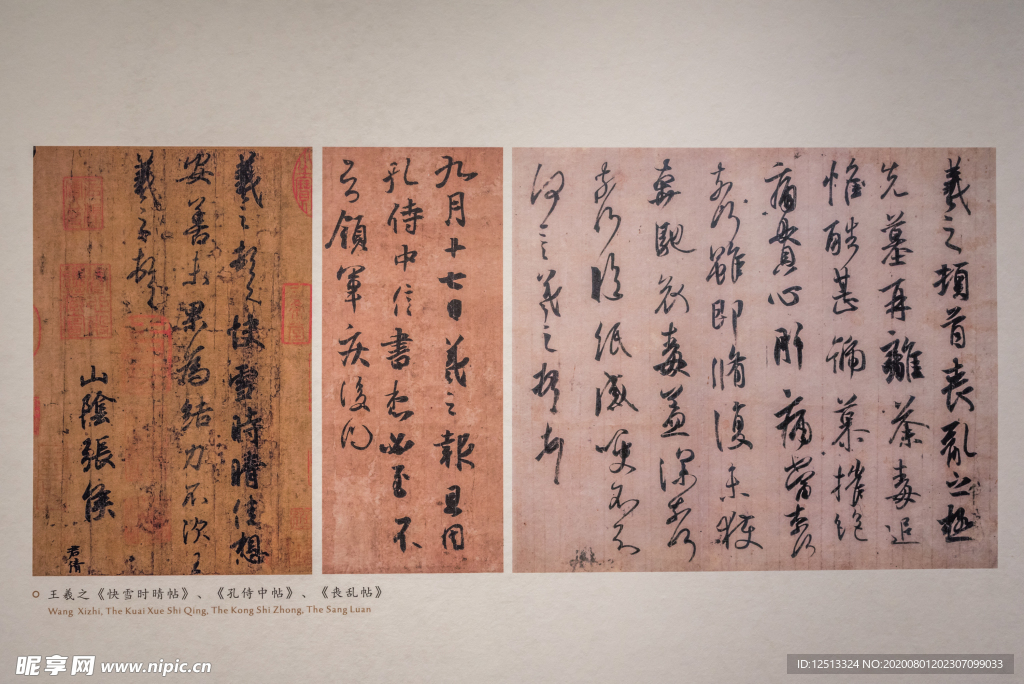 羲之頓首快雪時晴佳想
安善未果為結力不次王
羲之頓首
山陰張侯
君倩
九月十七日羲之報且因
孔侍中信書想必至不
知領軍疾後問
羲之頓首喪亂之極
先墓再離荼毒追
惟酷甚號慕摧絕
痛貫心肝痛當奈何
奈何雖即脩復未獲
奔馳哀毒益深奈何
奈何臨紙感哽不知
何言羲之頓首頓首
王羲之《快雪时晴帖》、《孔侍中帖》、《丧乱帖》
Wang Xizhi, The Kuai Xue Shi Qing, The Kong Shi Zhong, The Sang Luan
昵享网 www.nipic.cn
ID:12513324 NO:20200801202307099033